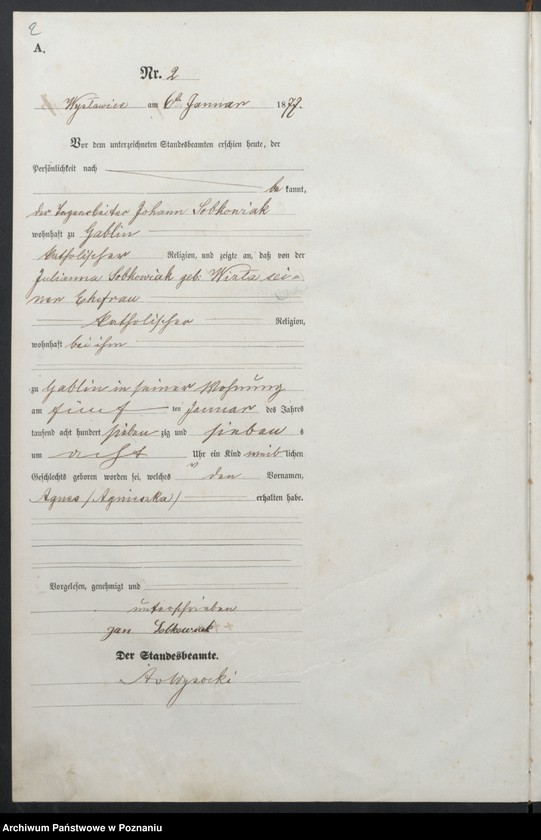 2
A.
Nr. 2
am 6th Januar 1877.
Vor dem unterzeichneten Standesbeamten erschien heute, der
Persönlichkeit nach
be kannt,
der Tagearbeiter Johann Sobkowiak
wohnhaft zu Gablin
katholischer Religion, und zeigte an, daß von der
Julianna Sobkowiak geb: Wirta sei=
ner Ehefrau
katholischer Religion,
wohnhaft bei ihm
zu Gablin in seiner Wohnung
am fünf ten Januar des Jahres
tausend acht hundert sieben zig und sieben
um acht Uhr ein Kind weib lichen
Geschlechts geboren worden sei, welches den Vornamen,
Agnes (Agnieszka) erhalten habe.
Vorgelesen, genehmigt und
unterschrieben
Jan Sobkowiak
Der Standesbeamte.
Wysocki
Archiwum Państwowe w Poznaniu